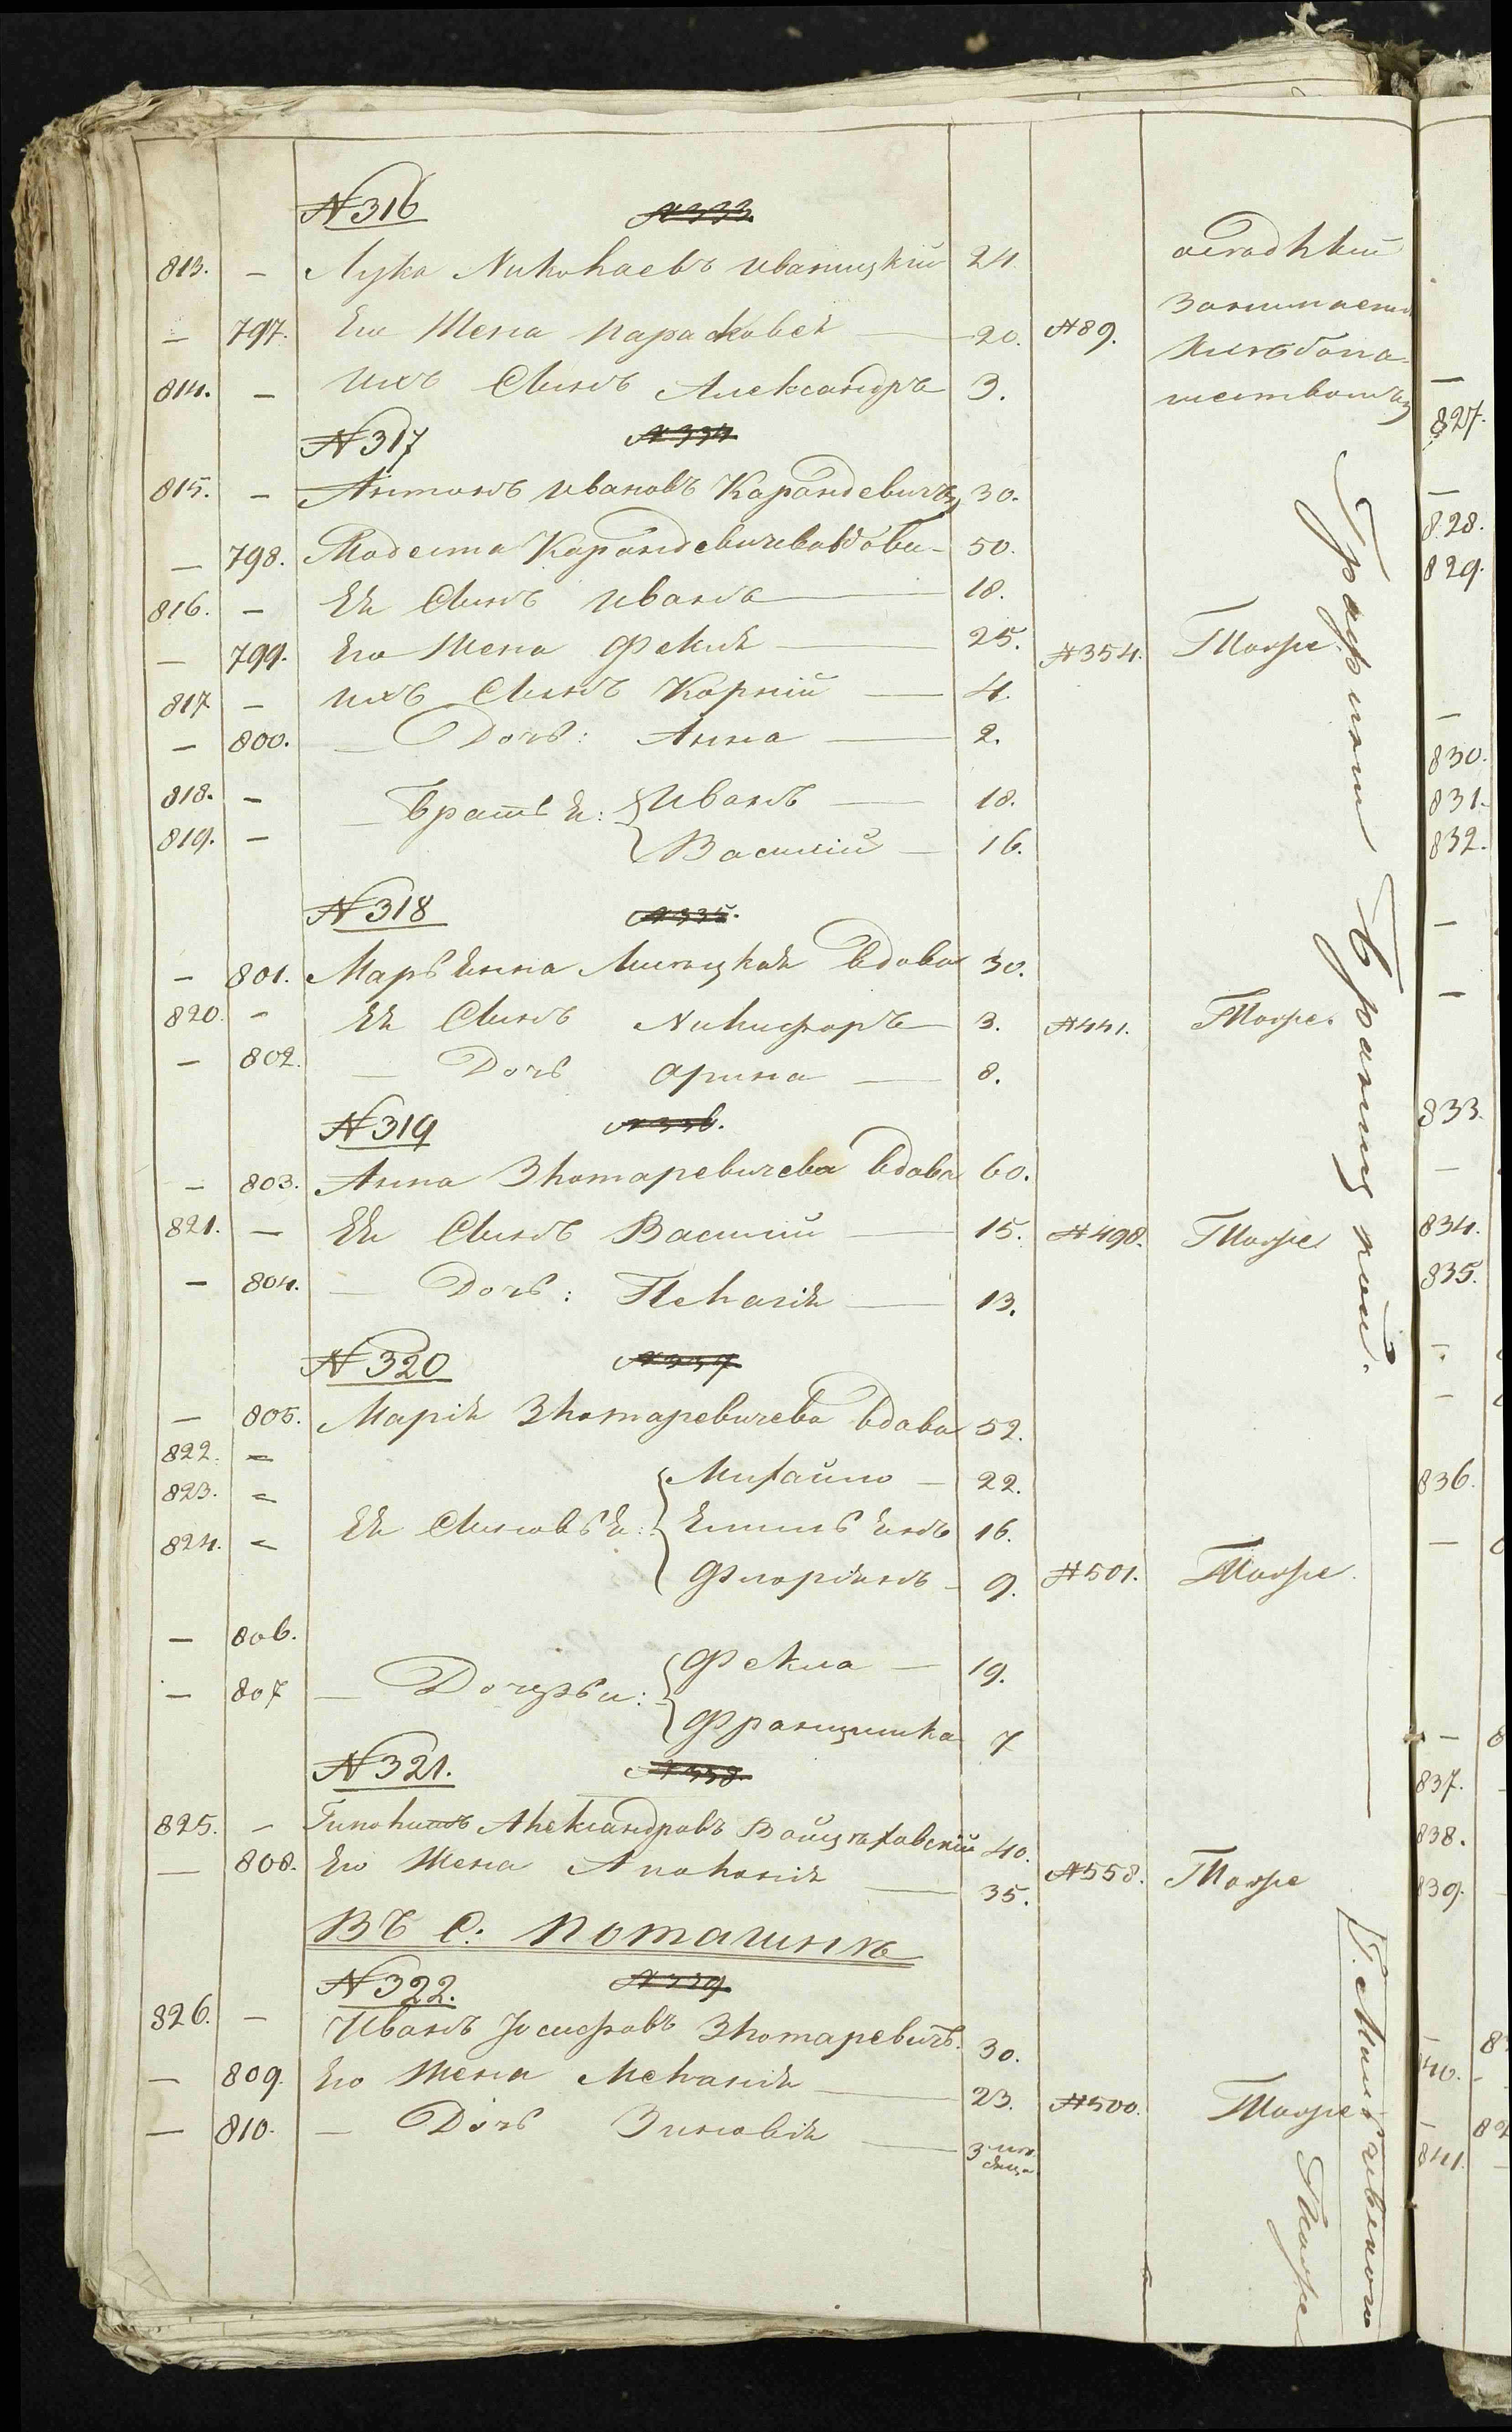 №316 №333
813. — Лука Николаевъ Иваницкій 24.
— 797. Его Жена Парасковея — 20. №89.
814. — Ихъ Сынъ Александръ 3.
оседлый
занимается
хлебопа-
шествомъ
№317 №334
815. — Антонъ Ивановъ Карандевичъ 30.
— 798. Модеста Карандевичева вдова 50.
816. — Ея Сынъ Иванъ — 18.
— 799. Его Жена Фекля — 25. №354. Тоже
817 — Ихъ Сынъ Корній — 4.
— 800. — Дочь: Анна — 2.
818. — — Братья: Иванъ — 18.
819. — Василій — 16.
№318 №335.
— 801. Марьянна Липицкая вдова 30.
820. — Ея Сынъ Никифоръ 3. №441. Тоже.
— 802. — Дочь Орина — 8.
№319 №336.
— 803. Анна Злотаревичева вдова 60.
821. — Ея Сынъ Василій — 15. №498. Тоже
— 804. — Дочь: Пелагія — 13.
№320 №337
— 805. Марія Злотаревичева вдова 52.
822. — Михайло — 22.
823. — Ея Сыновья: Емильянъ 16.
824. — Флоріянъ — 9. №501. Тоже.
— 806. Фекла — 19.
— 807 — Дочери: Францишка 7
№321. №338.
825. — Александровъ 40.
— 808. Его Жена Аполонія — 35. №558. Тоже
Въ С: Поташнѣ
№322. №339
826. — Иванъ Іосифовъ Злотаревичъ. 30.
— 809. Его Жена Меланія — 23. №500. Тоже
— 810. — Дочь Зиновія — 3 мѣсяца
Графини Браницкой.
Тоже
—
827.
—
828.
829.
—
830.
831.
832.
—
—
833.
—
834.
835.
—
—
836.
—
—
837.
838.
839.
—
840.
—
841.